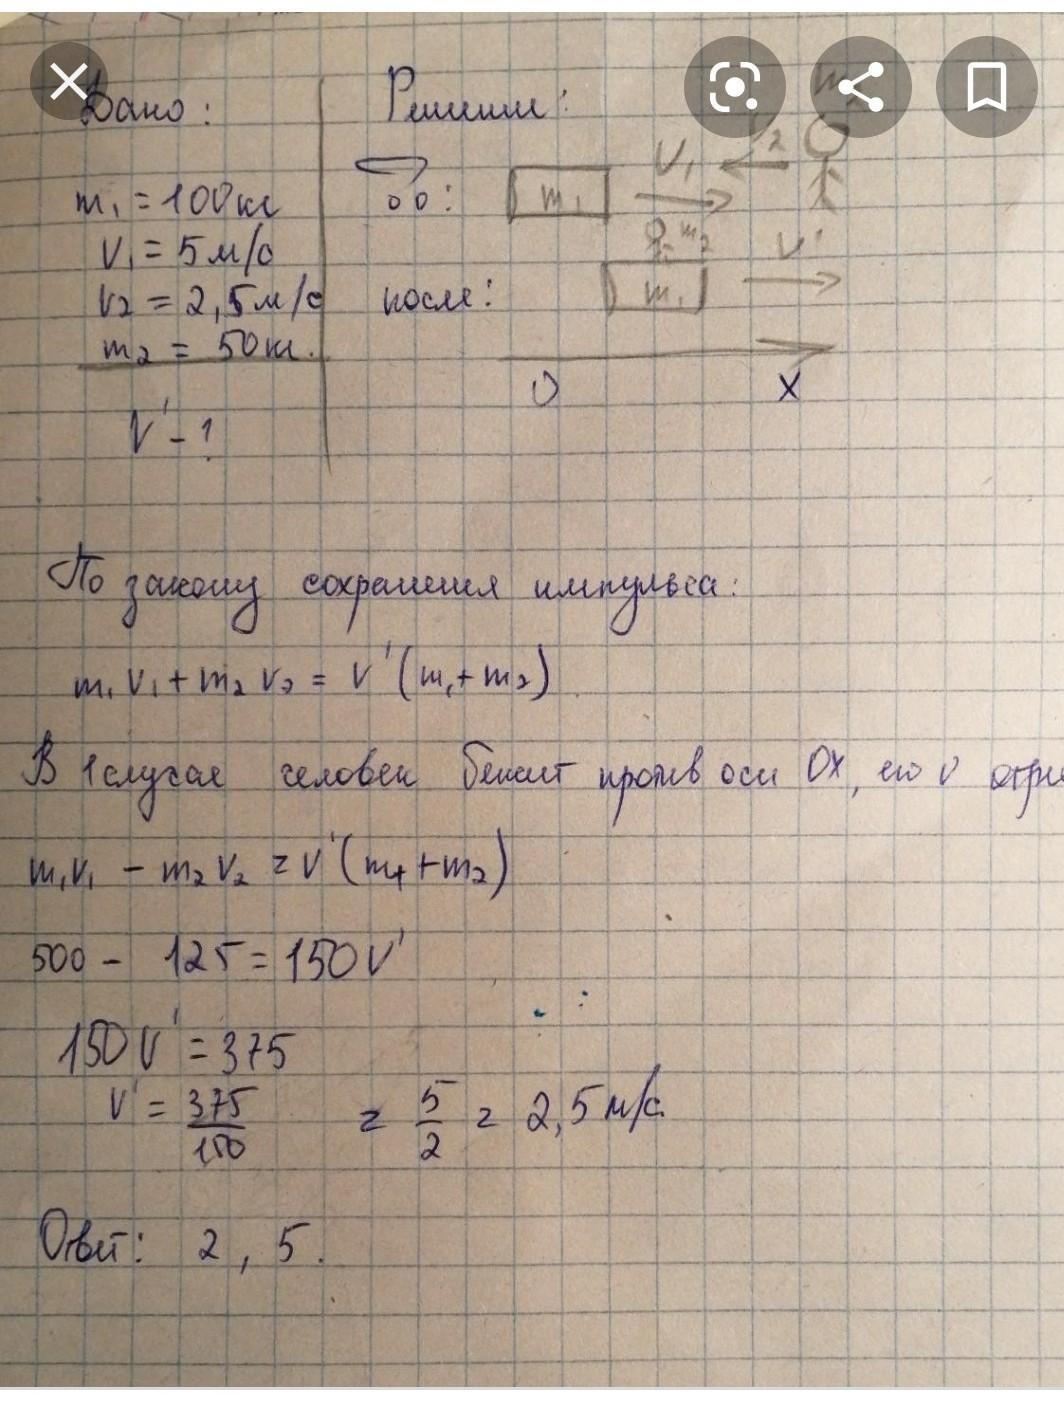 Дано:
Решение:
m₁ = 100 кг
V₁ = 5 м/с
V₂ = 2,5 м/с
m₂ = 50 кг.
V' - ?
до:
m₁
V₁
V₂
после:
m₂
m₁
V'
0
X
По закону сохранения импульса:
m₁V₁ + m₂V₂ = V'(m₁ + m₂)
В 1 случае человек бежит против оси OX, его v отри
m₁V₁ - m₂V₂ = V'(m₁ + m₂)
500 - 125 = 150V'
150V' = 375
V' = 375/150 = 5/2 = 2,5 м/с.
Ответ: 2,5.